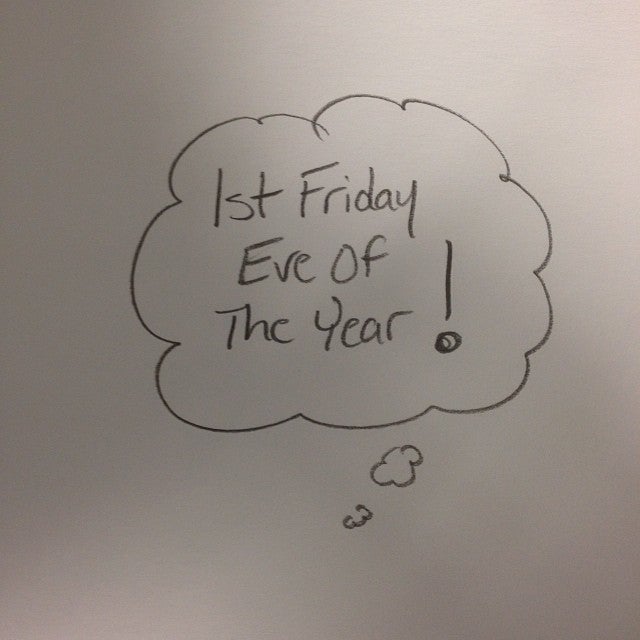 1st Friday
Eve Of
The Year!